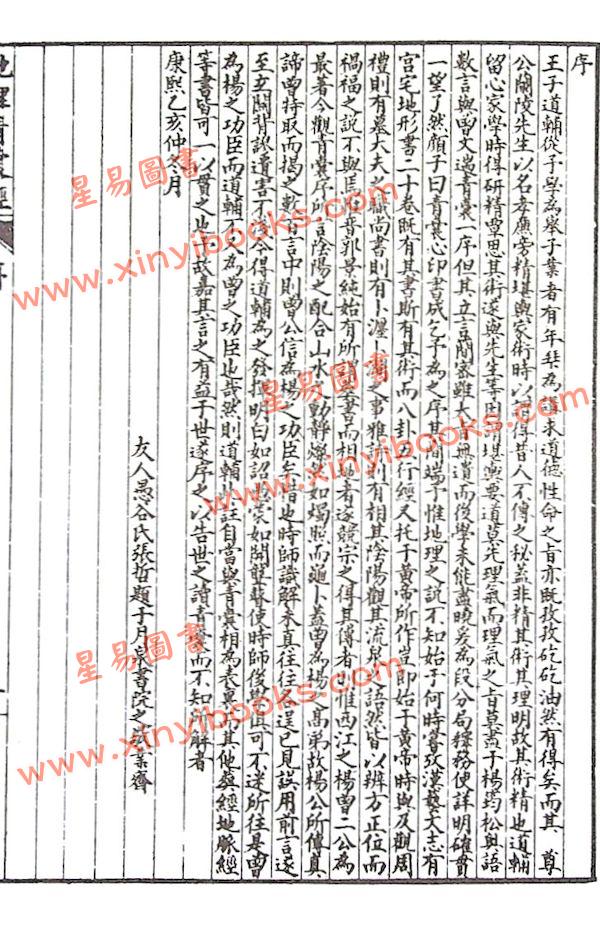 序
王子道輔從予學為舉子業者有年矣為講求道德性命之旨亦既孜孜矻矻油然有得矣而其尊
公蘭陵先生以名孝廉旁精堪輿家術時以得昔人不傳之秘蓋非精其術其理明故其術精也道輔
留心家學時得研精覃思其術遂與先生等則謂堪輿要道莫先理氣而理氣之旨莫盡于楊筠松與語
數言與曾文遄青囊一序但其立言簡奧雖大旨無遺而後學未能盡曉爰為段分句釋務使詳明確貫
一望了然顏子曰青囊心印書成乞予為之序其簡端予惟地理之說不知始于何時嘗攷漢藝文志有
宮宅地形書二十卷既有其書斯有其術而八卦五行經又托于黃帝所作豈即始于黃帝時與及觀周
禮則有墓大夫之職尚書則有卜瀍卜澗之事雅詩則有相其陰陽觀其流泉之語然皆以辨方正位而
禍福之說不與焉晉郭景純始有所謂葬書而相墓者遂競宗之得其傳者惟西江之楊曾二公為
最著今觀青囊序所言陰陽之配合山水之動靜燦如燭照而龜卜蓋曾為楊之高弟故楊公所傳真
諦曾持取而揭之數言中則曾公信為楊之功臣矣惜也時師識解未真往往自逞已見誤用前言遂
至立關背認遺害不淺今得道輔為之發揮明白如詔愚蒙如開聾瞽使時師俊學俱可不迷所往是曾
為楊之功臣而道輔不又為曾之功臣也哉然則道輔此註自當與青囊相為表裏其他葬經地脈經
等書皆可一以貫之也予故嘉其言之有益于世遂序之以告世之讀青囊而不知所解者
康熙乙亥仲冬月
友人愚谷氏張哲題于月泉書院之敬業齋
地理青囊經
序
星易圖書
www.xinyibooks.com
星易圖書
www.xinyibooks.com
星易圖書
www.xinyibooks.com